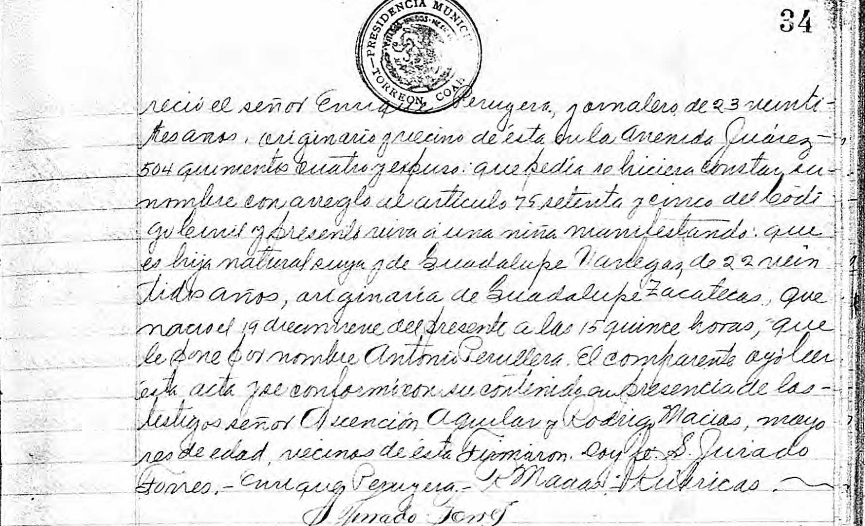 34
PRESIDENCIA MUNICI
TORREON, COAH.
reció el señor Enrique Perugera, jornalero, de 23 veinti-
tres años, originario y vecino de ésta en la Avenida Juárez
504 quinientos cuatro y expuso: que pedía se hiciera constar su
nombre con arreglo al artículo 75 setenta y cinco del Códi
go Civil y presentó viva á una niña manifestando: que
es hija natural suya y de Guadalupe de 22 vein
tidós años, originaria de Guadalupe Zacatecas, que
nació el 19 diecinueve del presente a las 15 quince horas, que
le pone por nombre Antonia. El comparente oyó leer
esta acta y se conformó con su contenido en presencia de los
testigos señor Ascención Aguilar y Rodrigo Macías, mayo
res de edad, vecinos de ésta. Firmaron. Doy fe. S. Jurado
Torres.- Enrique Perugera.- R Macias.- Rúbricas.
S Jurado Torres